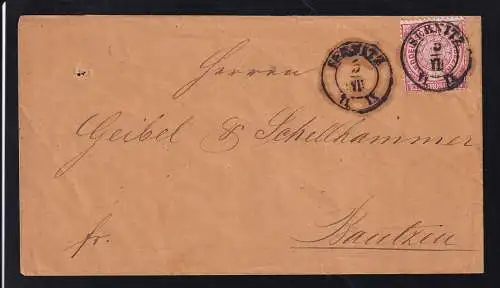 SERNITZ
5
VII
SERNITZ
5
VII
Herren
Geibel & Schellhammer
fr. Bautzen